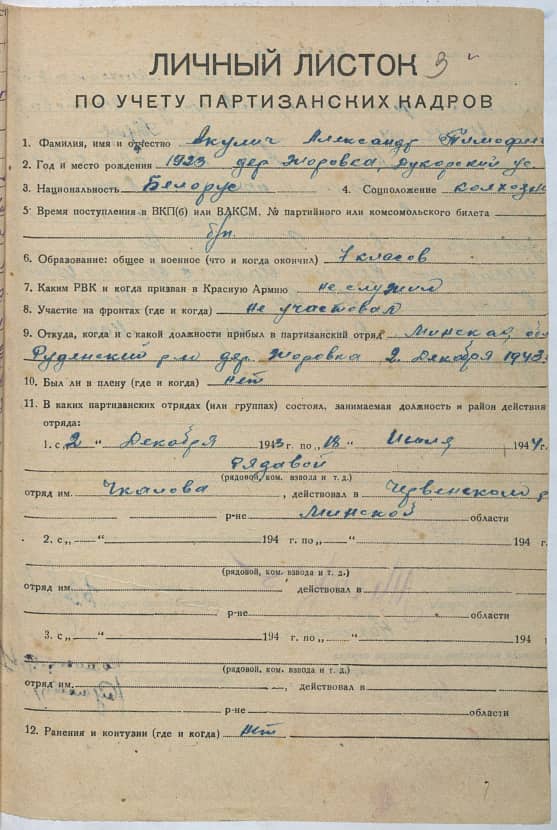 ЛИЧНЫЙ ЛИСТОК 3
ПО УЧЕТУ ПАРТИЗАНСКИХ КАДРОВ
1. Фамилия, имя и отчество Акулич Александр Тимофее
2. Год и место рождения 1923 дер. Жоровка, Дукорский
3. Национальность Белорус 4. Соцположение колхозни
5. Время поступления в ВКП(б) или ВЛКСМ, № партийного или комсомольского билета
б/п.
6. Образование: общее и военное (что и когда окончил) 7 класов
7. Каким РВК и когда призван в Красную Армию не служил
8. Участие на фронтах (где и когда) Не участовал
9. Откуда, когда и с какой должности прибыл в партизанский отряд Минская, об
Руденский р-н дер. Жоровка 2. Декабря 1943.
10. Был ли в плену (где и когда) нет
11. В каких партизанских отрядах (или группах) состоял, занимаемая должность и район действия
отряда:
1. с „2“ Декабря 1943 г. по „ “ Июля 1944 г.
Рядавой
(рядовой, ком. взвода и т. д.)
отряд им. Чкалова, действовал в Червенском р
р-не Минской области
2. с „ “ 194 г. по „ “ 194 г.
(рядовой, ком. взвода и т. д.)
отряд им. , действовал в
р-не области
3. с „ “ 194 г. по „ “ 194
(рядовой, ком. взвода и т. д.)
отряд им. , действовал в
р-не области
12. Ранения и контузии (где и когда) нет